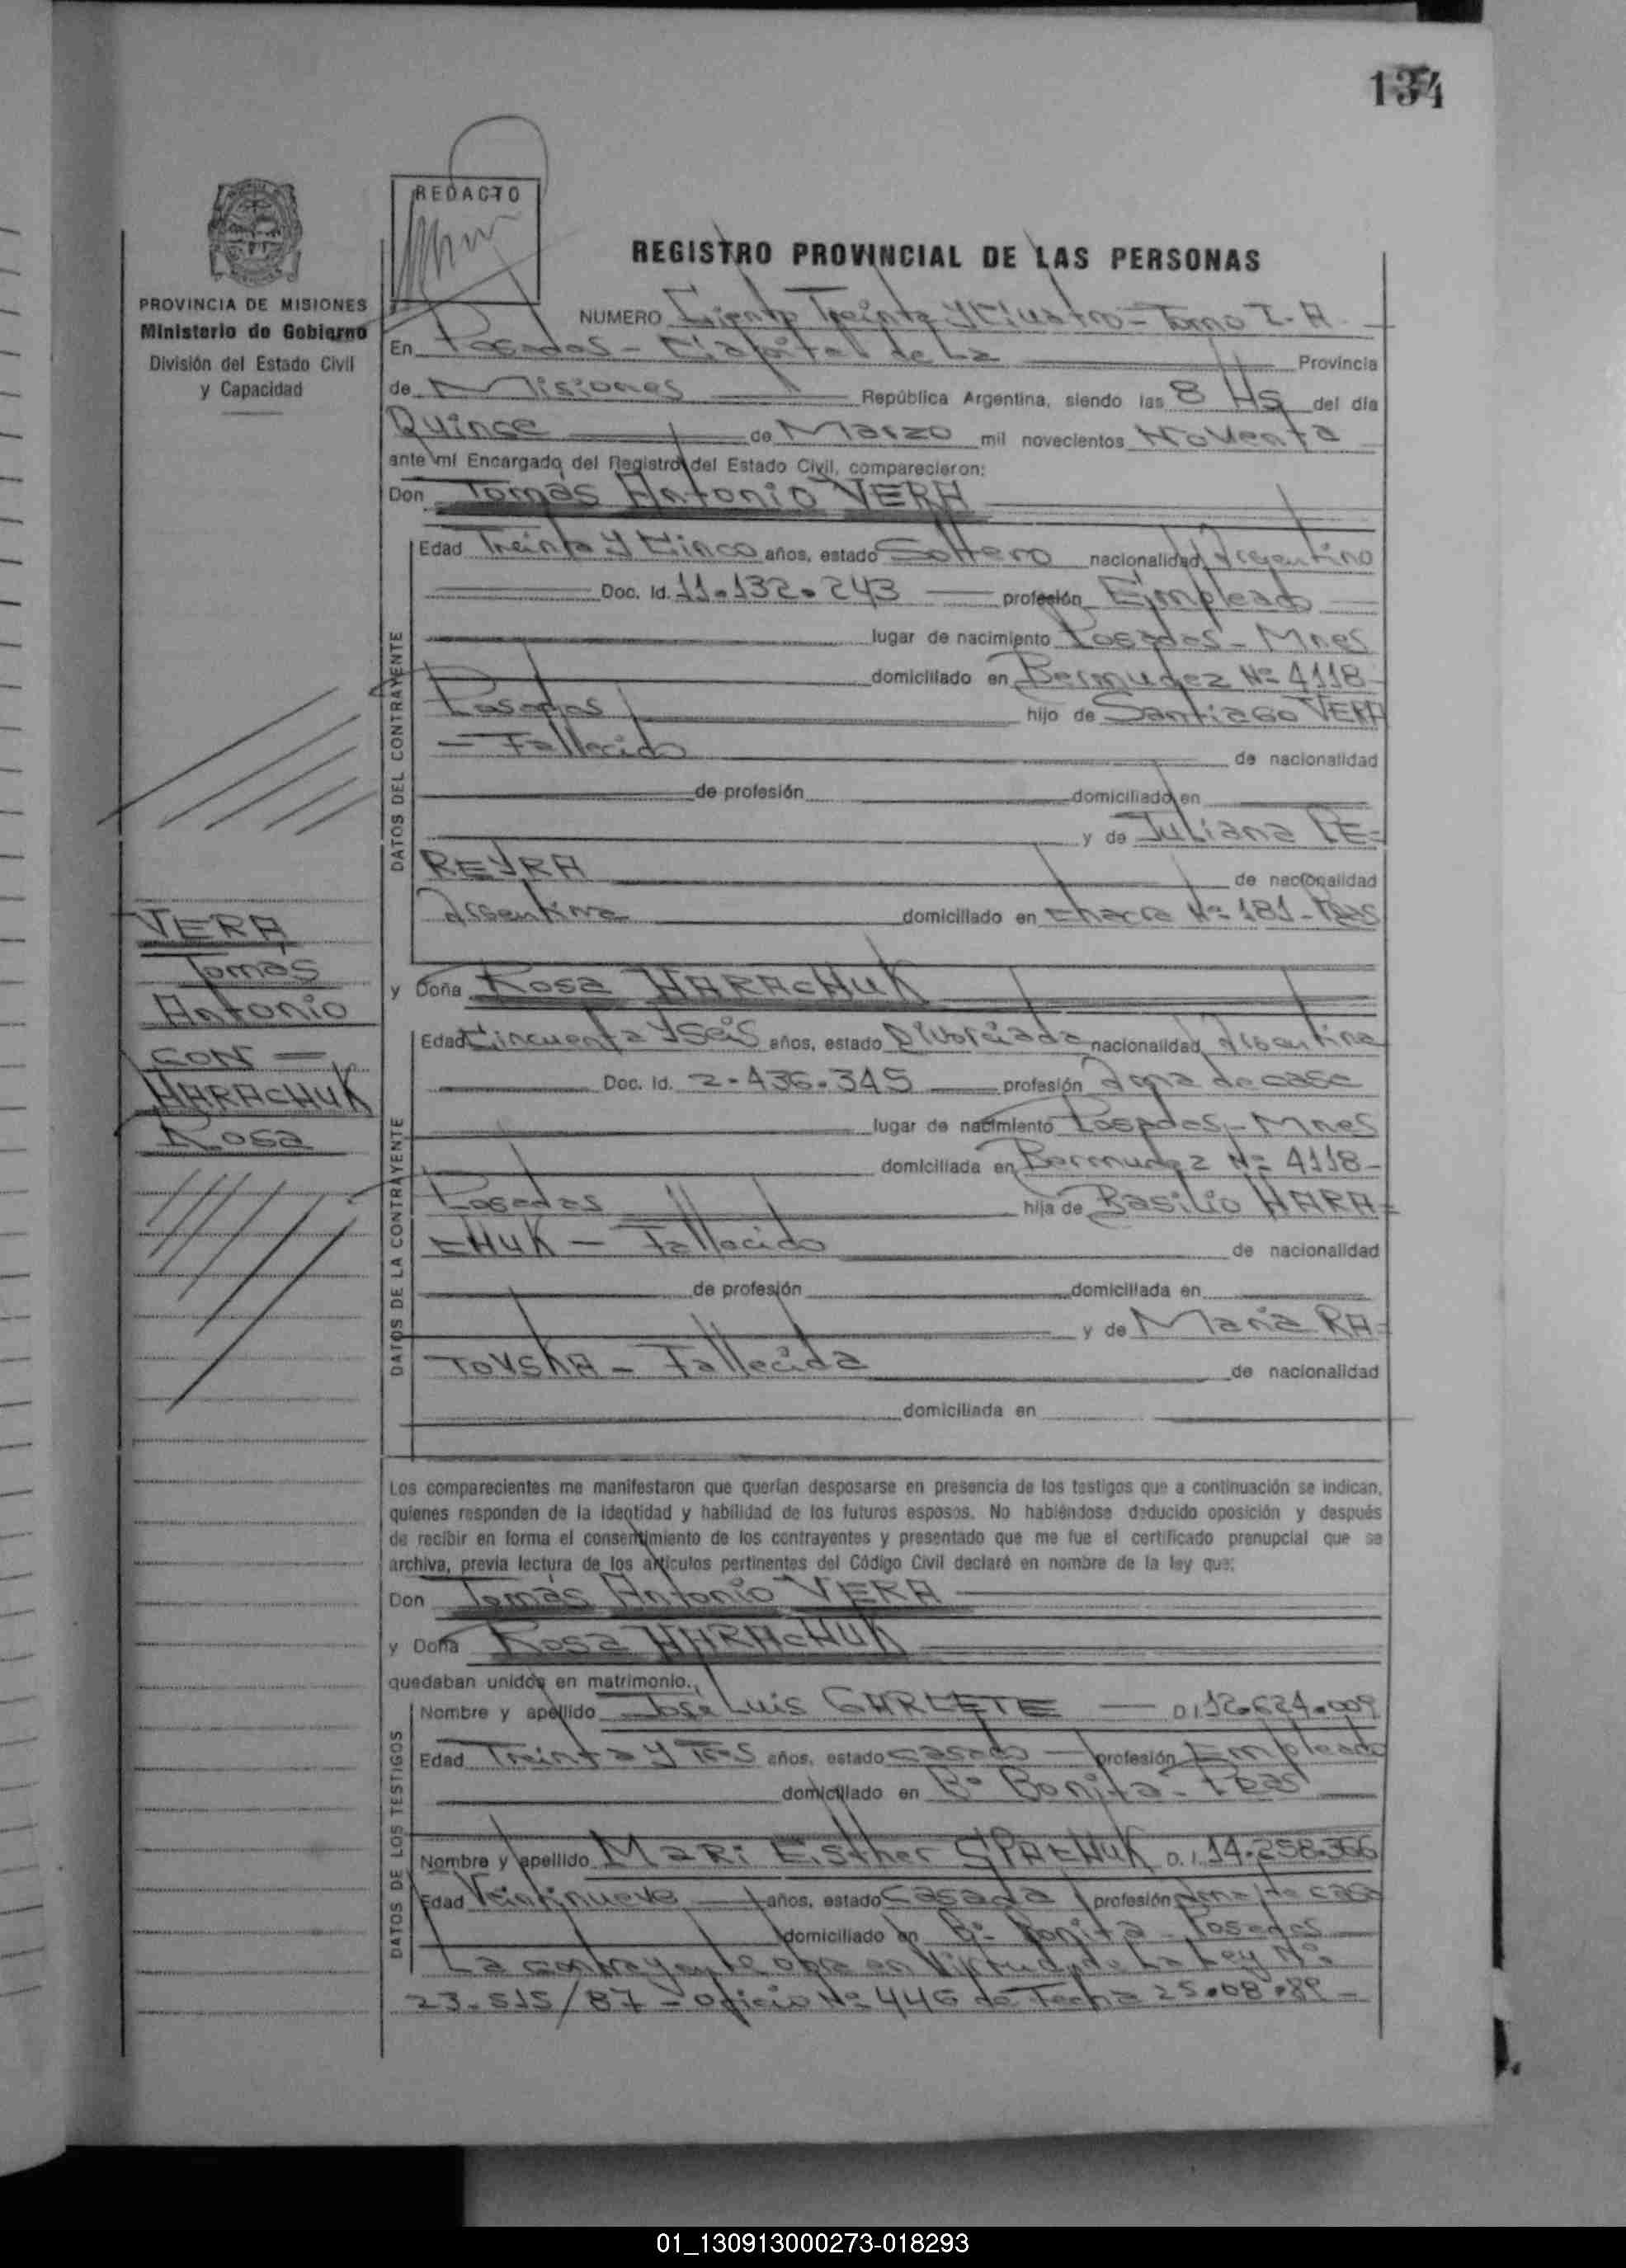 134
REDACTO
REGISTRO PROVINCIAL DE LAS PERSONAS
PROVINCIA DE MISIONES
Ministerio de Gobierno
División del Estado Civil
y Capacidad
NUMERO Ciento Treinta y Cuatro - Tomo I-A
En Posadas - Capital de La Provincia
de Misiones República Argentina, siendo las 8 Hs del día
Quince de Marzo mil novecientos Noventa
ante mí Encargado del Registro del Estado Civil, comparecieron:
Don Tomás Antonio VERA
DATOS DEL CONTRAYENTE
Edad Treinta y Cinco años, estado Soltero nacionalidad Argentino
Doc. Id. 11.132.243 profesión Empleado
lugar de nacimiento Posadas - Mnes
domiciliado en Bermudez Nº 4118-
Posadas hijo de Santiago VERA
- Fallecido de nacionalidad
de profesión domiciliado en
y de Juliana PE=
REYRA de nacionalidad
Argentina domiciliado en Chacra Nº 181-Pdas
VERA
Tomás
Antonio
CON -
HARACHUK
Rosa
y Doña Rosa HARACHUK
DATOS DE LA CONTRAYENTE
Edad Cincuenta y Seis años, estado Divorciada nacionalidad Argentina
Doc. Id. 2.436.345 profesión Ama de casa
lugar de nacimiento Posadas - Mnes
domiciliada en Bermudez Nº 4118-
Posadas hija de Basilio HARA=
CHUK - Fallecido de nacionalidad
de profesión domiciliada en
y de Maria RA=
TOVSKA - Fallecida de nacionalidad
domiciliada en
Los comparecientes me manifestaron que querían desposarse en presencia de los testigos que a continuación se indican,
quienes responden de la identidad y habilidad de los futuros esposos. No habiéndose deducido oposición y después
de recibir en forma el consentimiento de los contrayentes y presentado que me fue el certificado prenupcial que se
archiva, previa lectura de los artículos pertinentes del Código Civil declaré en nombre de la ley que:
Don Tomás Antonio VERA
y Doña Rosa HARACHUK
quedaban unidos en matrimonio.
DATOS DE LOS TESTIGOS
Nombre y apellido José Luis GARLETE - D.I. 12.624.009
Edad Treinta y Tres años, estado casado - profesión Empleado
domiciliado en Bº Bonita - Pdas
Nombre y apellido Mari Esther SPACHUK D.I. 14.258.366
Edad Veintinueve años, estado Casada profesión Ama de casa
domiciliado en Bº Bonita - Posadas
La contrayente obra en Virtud de La Ley Nº
23.515/87 - oficio Nº 446 de Fecha 25.08.89 -
01_130913000273-018293